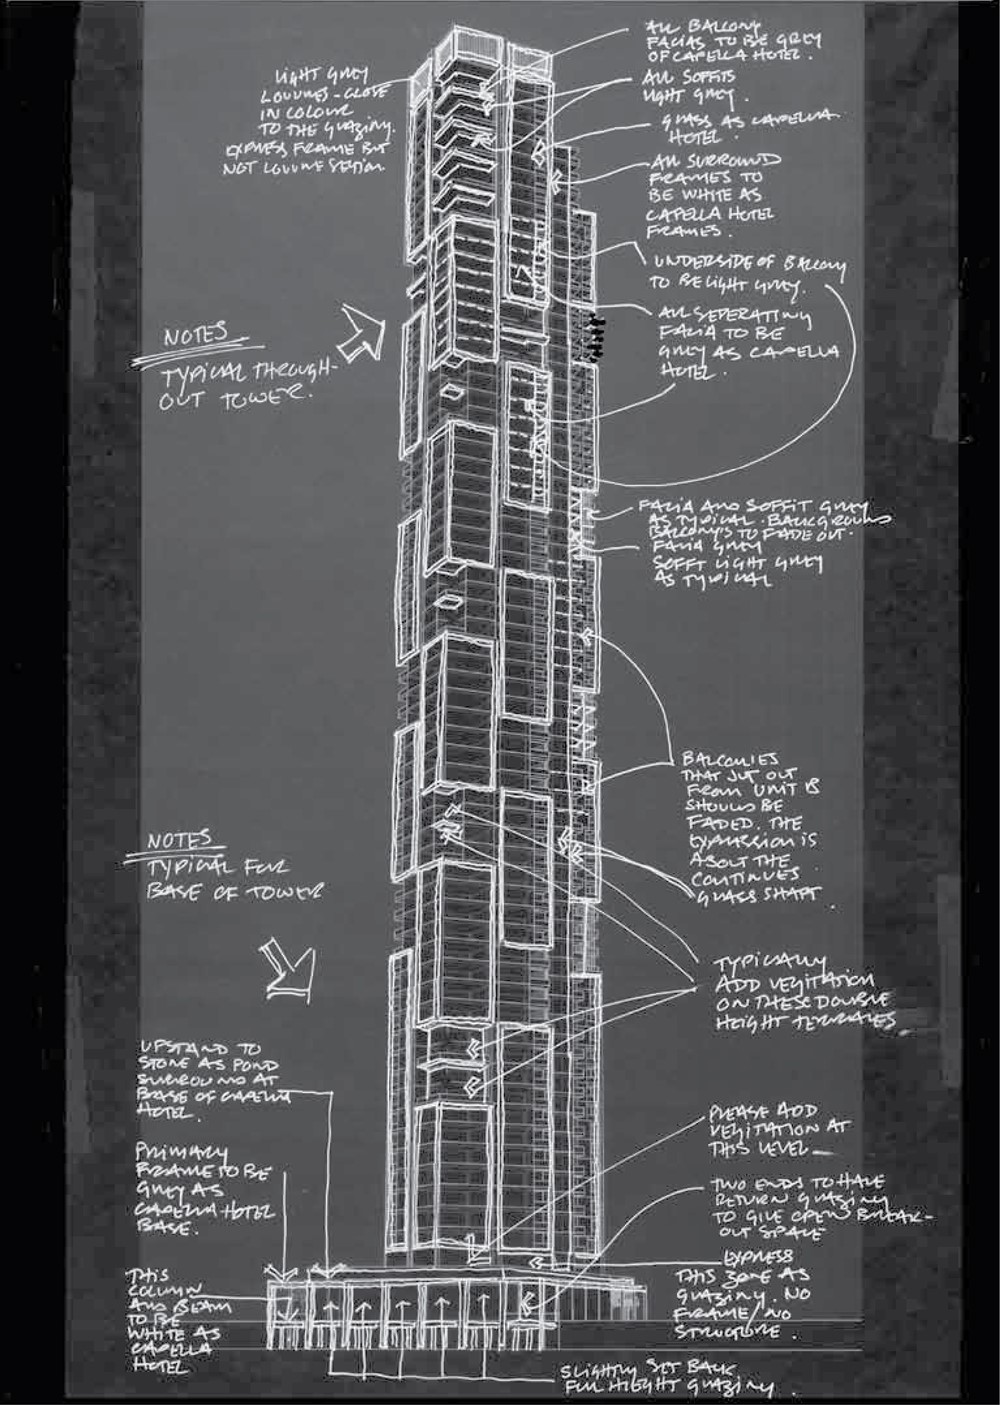 ALL BALCONY
FACIAS TO BE GREY
OF CAPELLA HOTEL.
ALL SOFFITS
LIGHT GREY.
GLASS AS CAPELLA
HOTEL.
ALL SURROUND
FRAMES TO
BE WHITE AS
CAPELLA HOTEL
FRAMES.
UNDERSIDE OF BALCONY
TO BE LIGHT GREY.
ALL SEPERATING
FACIA TO BE
GREY AS CAPELLA
HOTEL.
LIGHT GREY
LOUVRES - CLOSE
IN COLOUR
TO THE GLAZING.
EXPRESS FRAME BUT
NOT LOUVRE
NOTES
TYPICAL THROUGH-
OUT TOWER.
FACIA AND SOFFIT GREY
AS TYPICAL. BACKGROUND
BALCONY'S TO FADE OUT.
FACIA GREY
SOFFIT LIGHT GREY
AS TYPICAL
BALCONIES
THAT JUT OUT
FROM UNIT
SHOULD BE
FADED. THE
EXPRESSION IS
ABOUT THE
CONTINUES
GLASS SHAFT.
NOTES
TYPICAL FOR
BASE OF TOWER
TYPICALLY
ADD VEGITATION
ON THESE DOUBLE
HEIGHT TERRACES.
UPSTAND TO
STONE AS POND
SURROUND AT
BASE OF CAPELLA
HOTEL.
PRIMARY
FRAME TO BE
GREY AS
CAPELLA HOTEL
BASE.
THIS
COLUMN
AND BEAM
TO BE
WHITE AS
CAPELLA
HOTEL
PLEASE ADD
VEGITATION AT
THIS LEVEL
TWO ENDS TO HAVE
RETURN GLAZING
TO GIVE OPEN BREAK-
OUT SPACE
EXPRESS
THIS ZONE AS
GLAZING. NO
FRAME/NO
STRUCTURE.
SLIGHTLY SET BACK
FULL HIEGHT GLAZING.